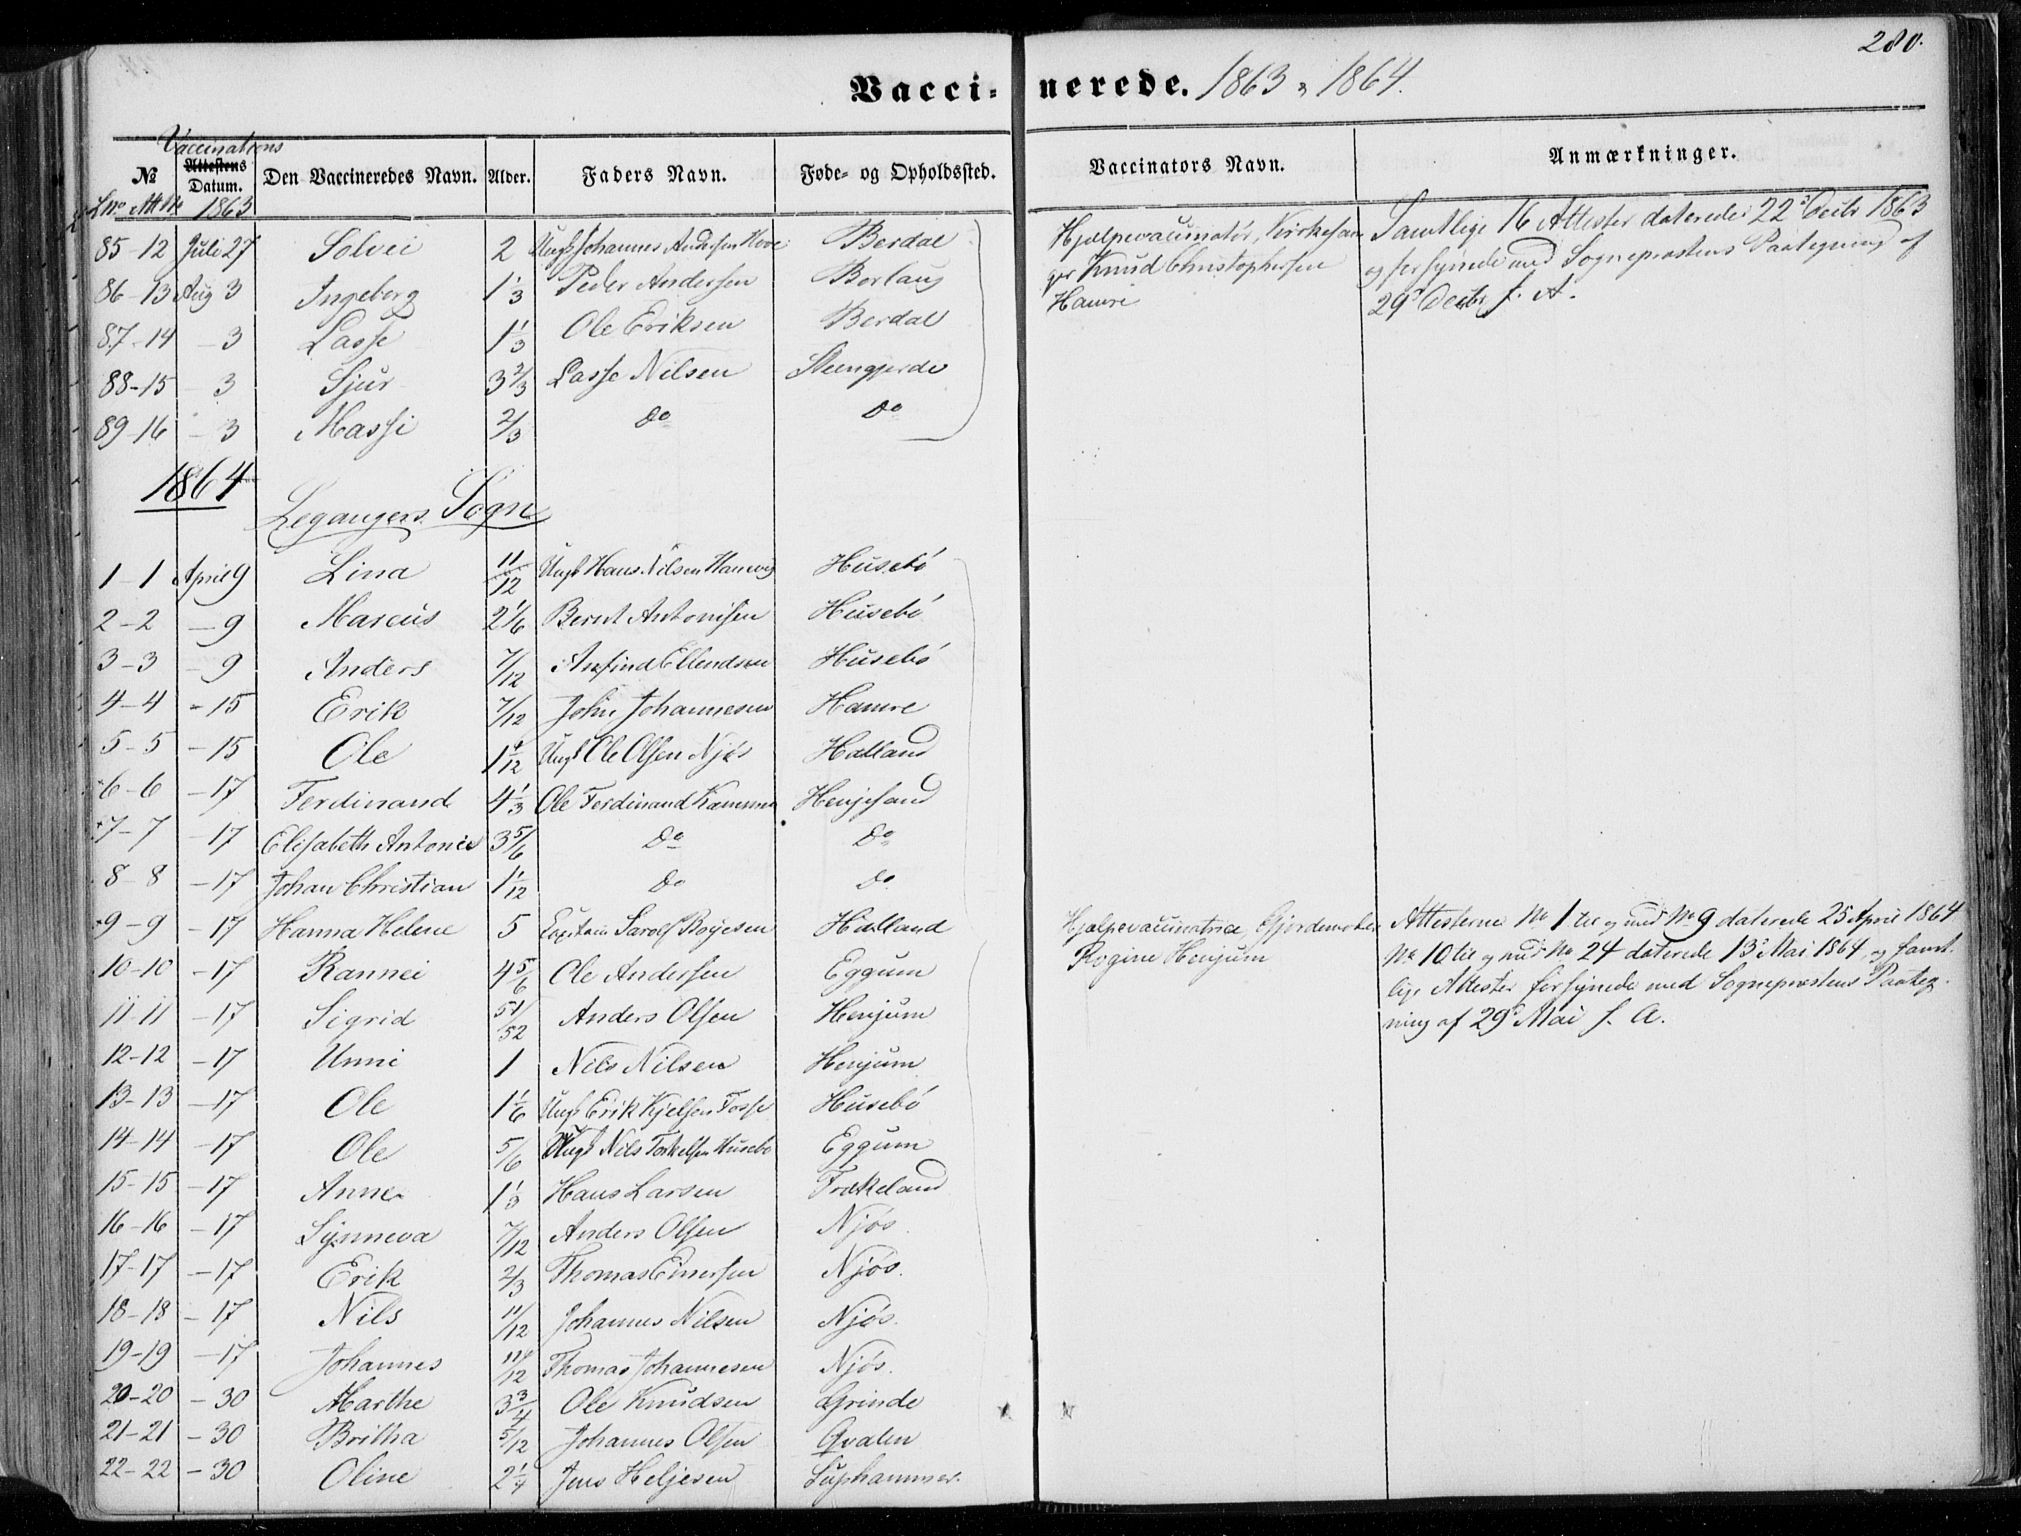 280.
Vaccinerede. 1863 & 1864.
Vaccinations
№ Attestens Datum. Den Vaccineredes Navn. Alder. Faders Navn. Føde- og Opholdssted. Vaccinators Navn. Anmærkninger.
Lno Att No 1863
85-12 Juli 27 Solvei 2 Ungk Johannes Andersen Hove Berdal
86-13 Aug 3 Ingeborg 1 1/3 Peder Andersen Borlaug
87-14 - 3 Lasse 1 1/3 Ole Eriksen Berdal
88-15 - 3 Sjur 3 2/3 Lasse Nilsen Steengjerde
89-16 - 3 Massi 2/3 do do
Hjælpevaccinatør, Kirkesan
ger Knud Christophersen
Hamre
Samtlige 16 Attester daterede 22d Decbr 1863
og forsynede med Sogneprestens Paategning af
29d Decbr s. A.
1864
Leganger Sogn
1-1 April 9 Lina 11/12 Ungk Hans Nilsen Husebø
2-2 - 9 Marcus 2 1/6 Bernt Antonisen Husebø
3-3 - 9 Anders 7/12 Anfind Ellendsen Husebø
4-4 - 15 Erik 7/12 John Johannesen Hamre
5-5 - 15 Ole 1 1/12 Ungk Ole Olsen Njøs Halland
6-6 - 17 Ferdinand 4 1/3 Ole Ferdinand Henjesand
7-7 - 17 Elisabeth Antonie 3 5/6 do do
8-8 - 17 Johan Christian 1 1/12 do do
9-9 - 17 Hanna Helene 5 Capitain Sarolf Boyesen Halland
10-10 - 17 Rannei 4 5/6 Ole Andersen Eggum
11-11 - 17 Sigrid 51/52 Anders Olsen Henjum
12-12 - 17 Unni 1 Nils Nilsen Henjum
13-13 - 17 Ole 1 1/6 Ungk Erik Kjelsen Fosse Husebø
14-14 - 17 Ole 5/6 Ungk Nils Torkelsen Husebø Eggum
15-15 - 17 Anna 1 1/3 Hans Larsen Trækeland
16-16 - 17 Synneva 7/12 Anders Olsen Njøs.
17-17 - 17 Erik 2/3 Thomas Einersen Njøs.
18-18 - 17 Nils 11/12 Johannes Nilsen Njøs.
19-19 - 17 Johannes 11/12 Thomas Johannesen Njøs.
20-20 - 30 Marthe 3 3/4 Ole Knudsen Grinde
21-21 - 30 Britha 5/12 Johannes Olsen Qvalen
22-22 - 30 Oline 2 1/4 Jens Heljesen Suphammer.
Hjælpevaccinatrice, Gjordemoder
Rogine Henjum
Attesterne No 1 til og med No 9 daterede 25 April 1864
No 10 til og med No 24 daterede 13d Mai 1864, og samt.
lige Attester forsynede med Sogneprestens Paateg-
ning af 29d Mai s. A.